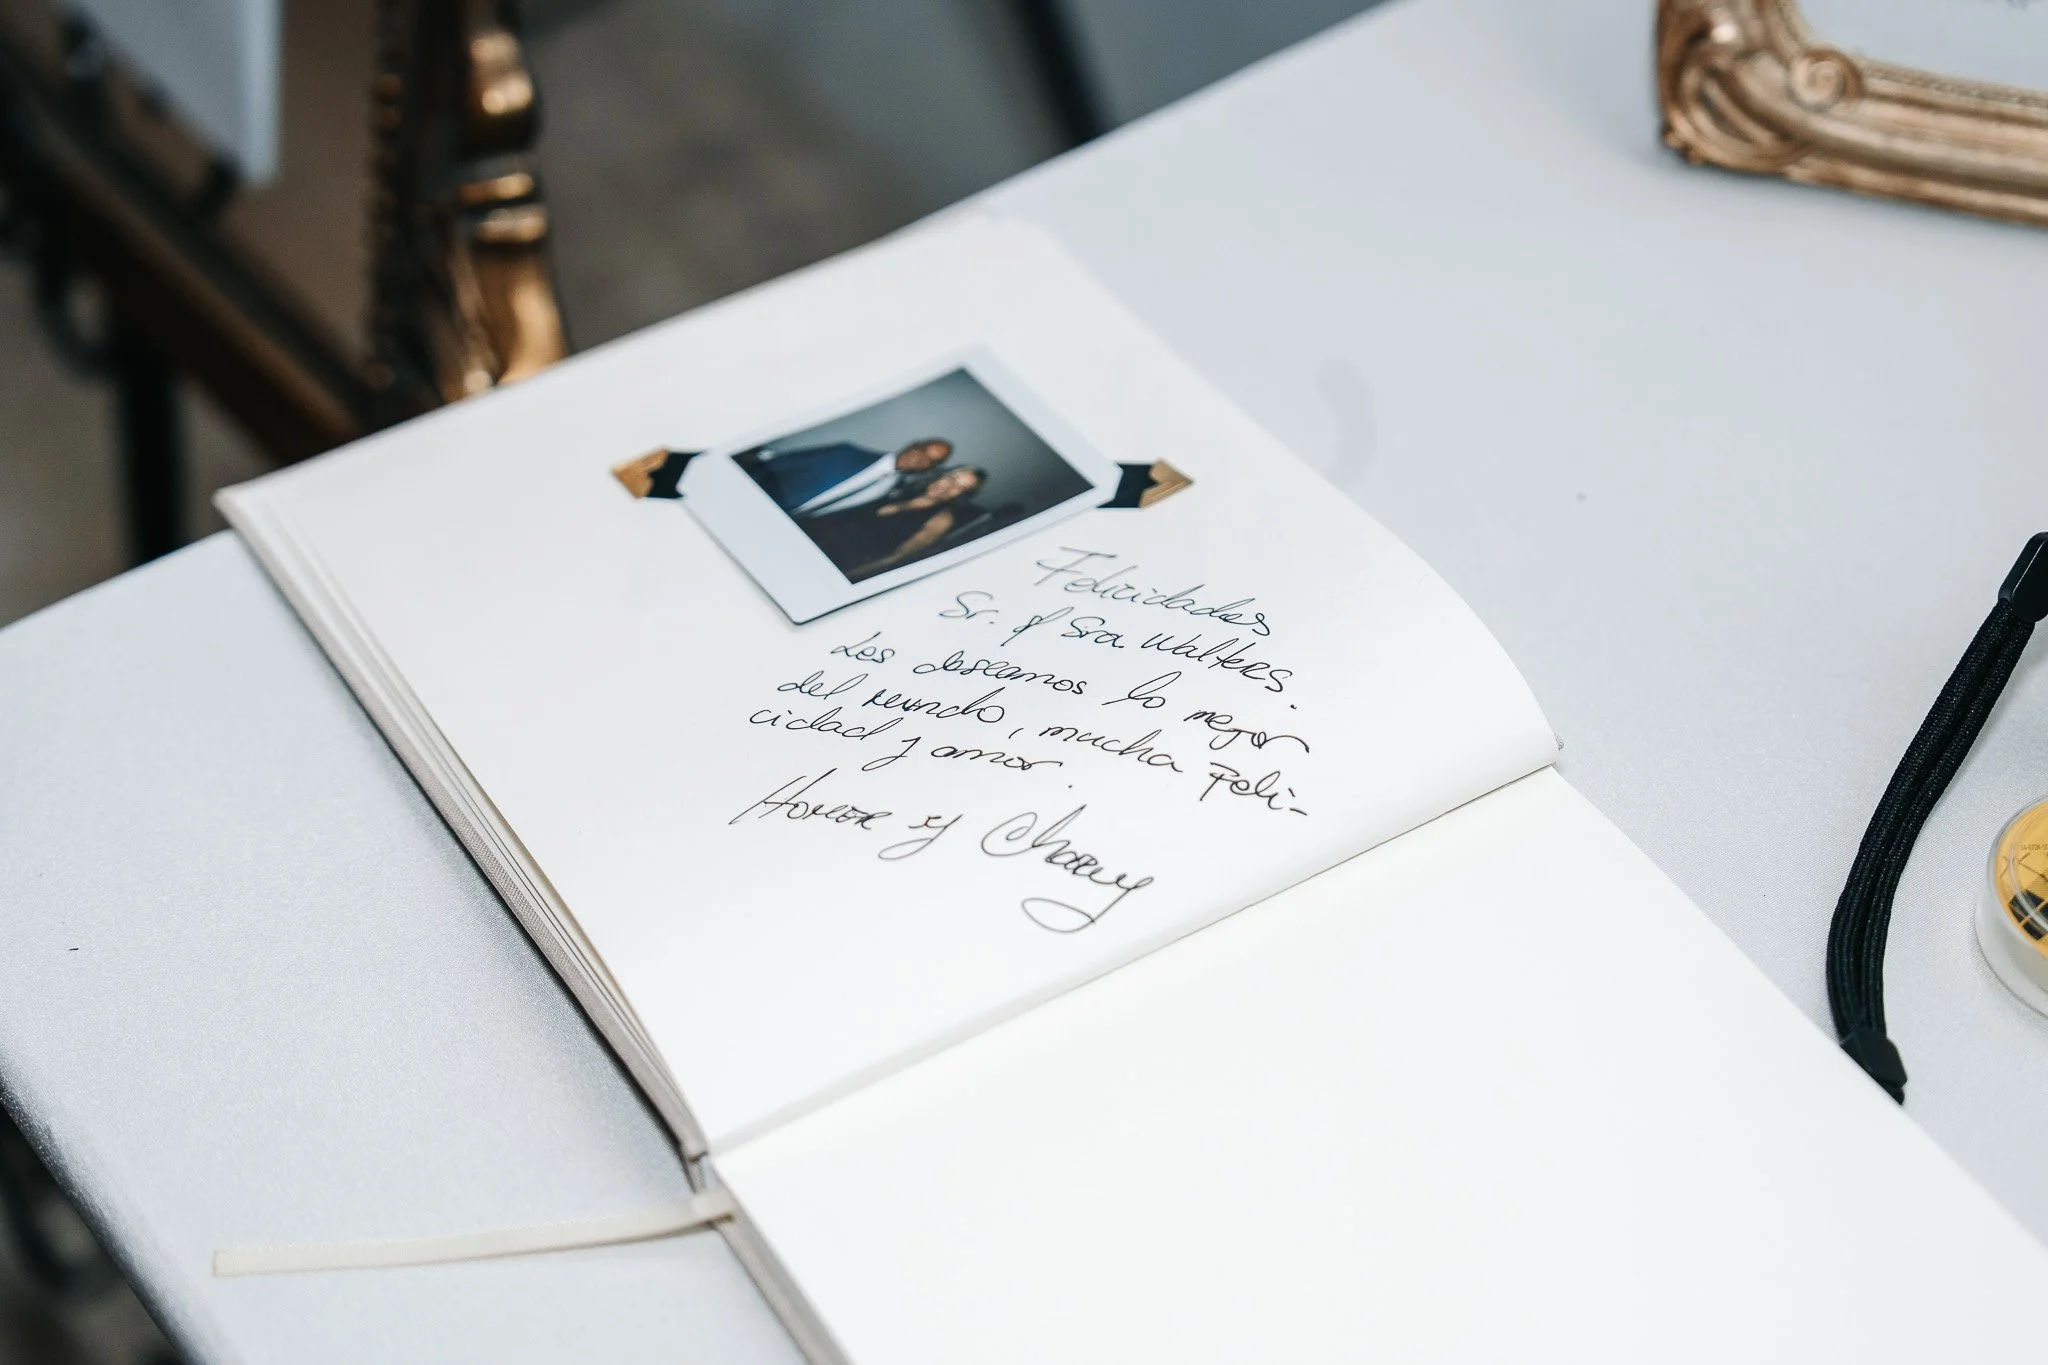 Felicidades
Sr. y Sra. Walters.
Les deseamos lo mejor
del mundo, mucha Feli-
cidad y amor.
Homer y